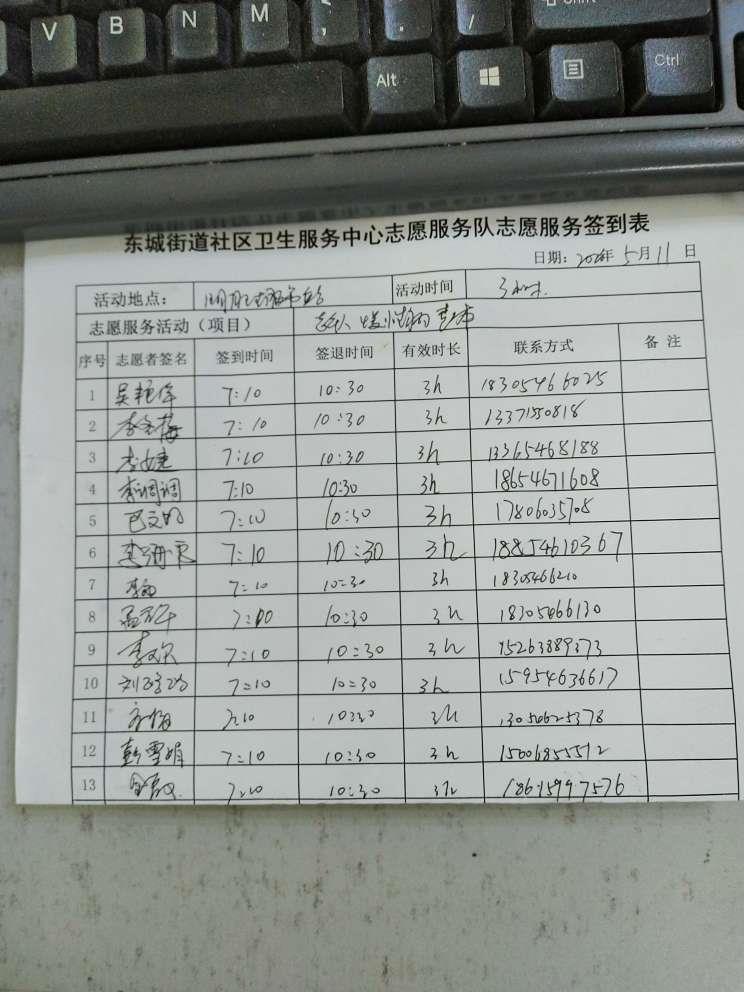 V B N M , . /
Alt Ctrl
东城街道社区卫生服务中心志愿服务队志愿服务签到表
日期: 年 5月11日
活动地点: 活动时间
志愿服务活动（项目）
序号 志愿者签名 签到时间 签退时间 有效时长 联系方式 备注
1 吴艳 7:10 10:30 3h 18305466025
2 李 梅 7:10 10:30 3h
3 李 7:10 10:30 3h 13365468188
4 李调调 7:10 10:30 3h 18654671608
5 巴文 7:10 10:30 3h 17806035708
6 李珊 7:10 10:30 3h 18854610367
7 李 7:10 10:30 3h 18305466210
8 孟 10:30 3h 18305466130
9 李欢 7:10 10:30 3h 15263889373
10 刘 7:10 10:30 3h 15954636617
11 7:10 10:30 3h
12 彭雪娟 7:10 10:30 3h 15606855512
13 7:10 10:30 3h 18615997576